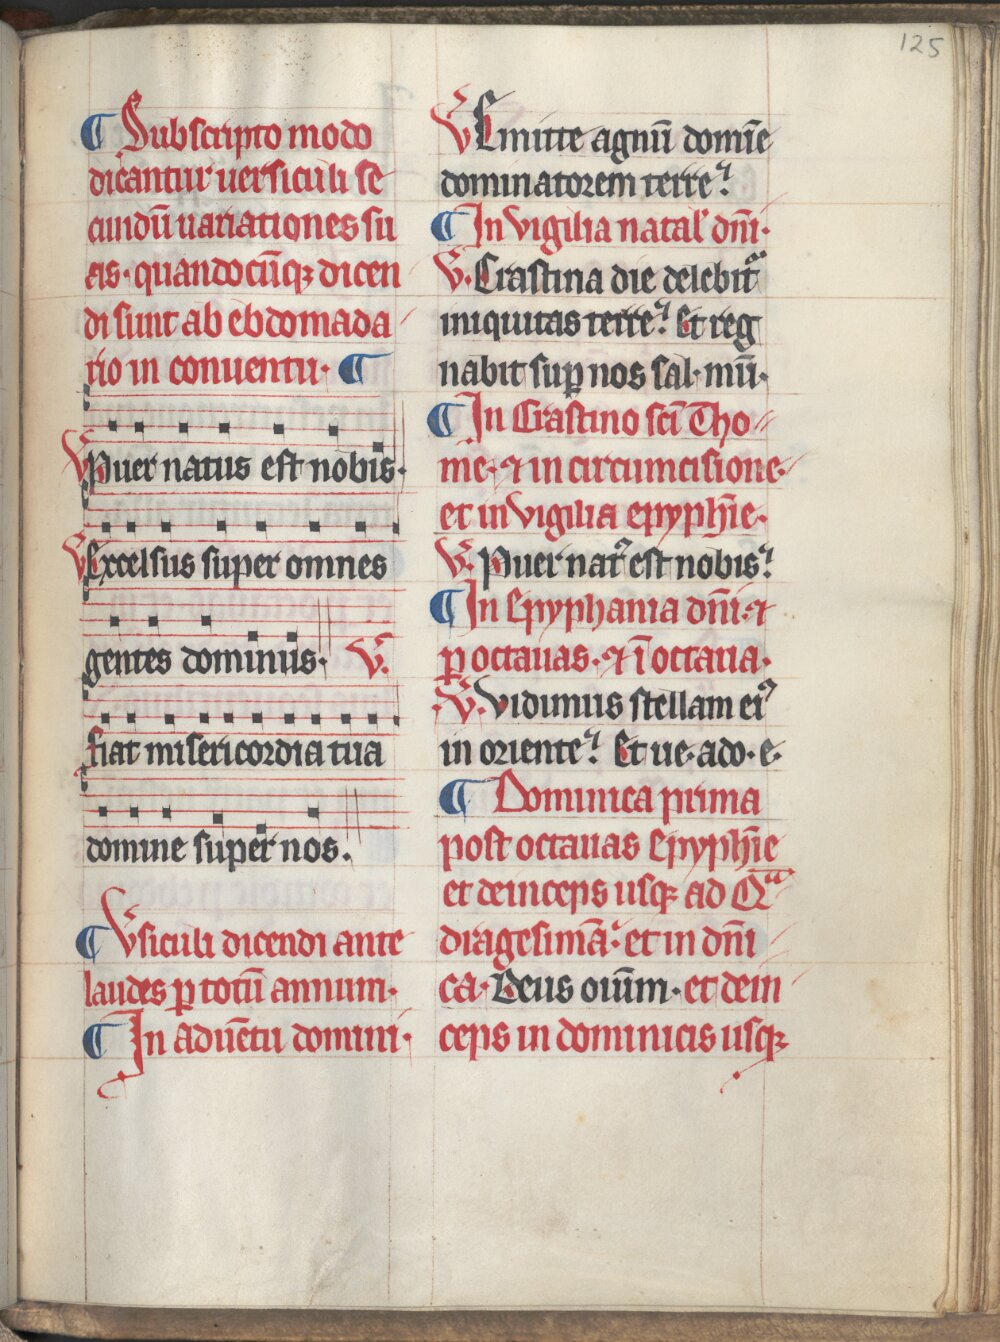 125
¶ Subscripto modo
dicantur uersiculi se
cundū uariationes su
as · quandocūqꝫ dicen
di sunt ab ebdomada
rio in conuentu · ¶
℣ Puer natus est nobis ·
℣ Excelsus super omnes
gentes dominus · ℣.
fiat misericordia tua
domine super nos .
¶ Vsiculi dicendi ante
laudes ꝑ totū annum ·
¶ In aduētu domini ·
℣ Emitte agnū domīe
dominatorem terre.
¶ In vigilia natal' dn̄i ·
℣. Crastina die delebit᷑
iniquitas terre. Et reg
nabit suꝑ nos sal · mū ·
¶ In Crastino sc̄i Tho
me · ⁊ in circumcisione ·
et in vigilia epyph̄ie ·
℣. Puer nat᷑ est nobis.
¶ In Epyphania dn̄i · ⁊
ꝑ octauas · ⁊ ī octaua ·
℣. Vidimus stellam ei᷒
in oriente. Et ue · ado · e ·
¶ Dominica prima
post octauas Epyph̄ie
et deinceps usqꝫ ad Qᵃ
dragesimā · et in dn̄i
ca · Deus oīum · et dein
ceps in dominicis usqꝫ